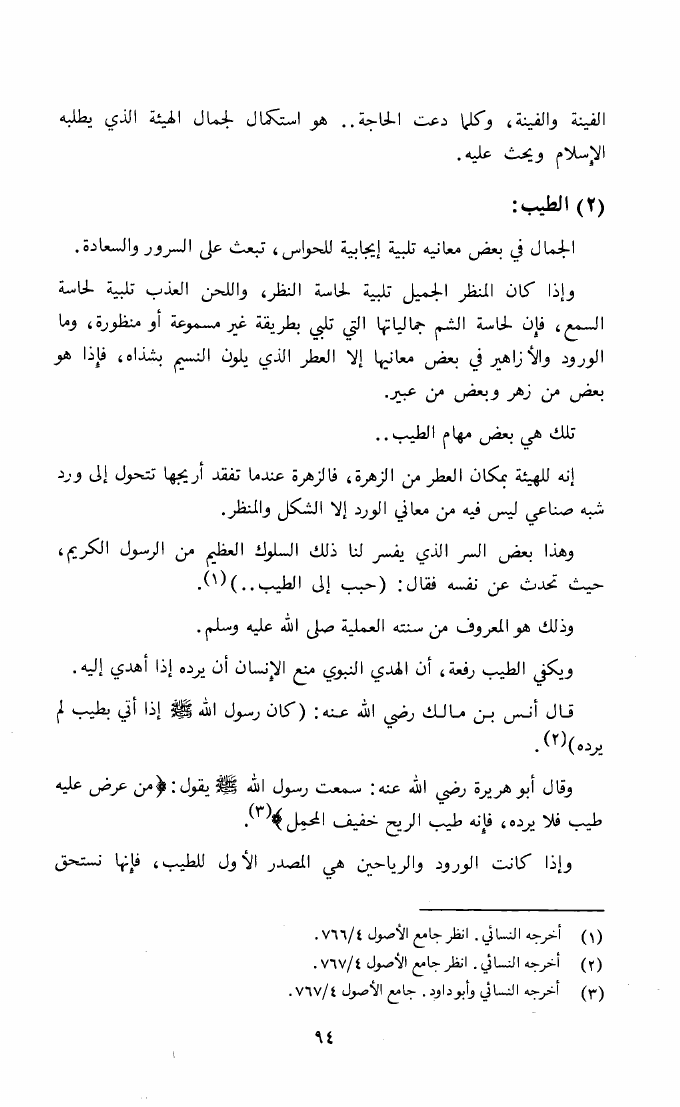 الفينة والفينة، وكلما دعت الحاجة.. هو استكمال لجمال الهيئة الذي يطلبه
الإسلام ويحث عليه.
(٢) الطيب:
الجمال في بعض معانيه تلبية إيجابية للحواس، تبعث على السرور والسعادة.
وإذا كان المنظر الجميل تلبية لحاسة النظر، واللحن العذب تلبية لحاسة
السمع، فإن لحاسة الشم جمالياتها التي تلبي بطريقة غير مسموعة أو منظورة، وما
الورود والأزاهير في بعض معانيها إلا العطر الذي يلون النسيم بشذاه، فإذا هو
بعض من زهر وبعض من عبير.
تلك هي بعض مهام الطيب..
إنه للهيئة بمكان العطر من الزهرة، فالزهرة عندما تفقد أريجها تتحول إلى ورد
شبه صناعي ليس فيه من معاني الورد إلا الشكل والمنظر.
وهذا بعض السر الذي يفسر لنا ذلك السلوك العظيم من الرسول الكريم،
حيث تحدث عن نفسه فقال: (حبب إلى الطيب..)(١).
وذلك هو المعروف من سنته العملية صلى الله عليه وسلم.
ويكفي الطيب رفعة، أن الهدي النبوي منع الإنسان أن يرده إذا أهدي إليه.
قال أنس بن مالك رضي الله عنه: (كان رسول الله ﷺ إذا أتي بطيب لم
يرده)(٢).
وقال أبو هريرة رضي الله عنه: سمعت رسول الله ﷺ يقول: ﴿من عرض عليه
طيب فلا يرده، فإنه طيب الريح خفيف المحمل﴾(٣).
وإذا كانت الورود والرياحين هي المصدر الأول للطيب، فإنها نستحق
(١) أخرجه النسائي. انظر جامع الأصول ٧٦٦/٤.
(٢) أخرجه النسائي. انظر جامع الأصول ٧٦٧/٤.
(٣) أخرجه النسائي وأبو داود. جامع الأصول ٧٦٧/٤.
٩٤